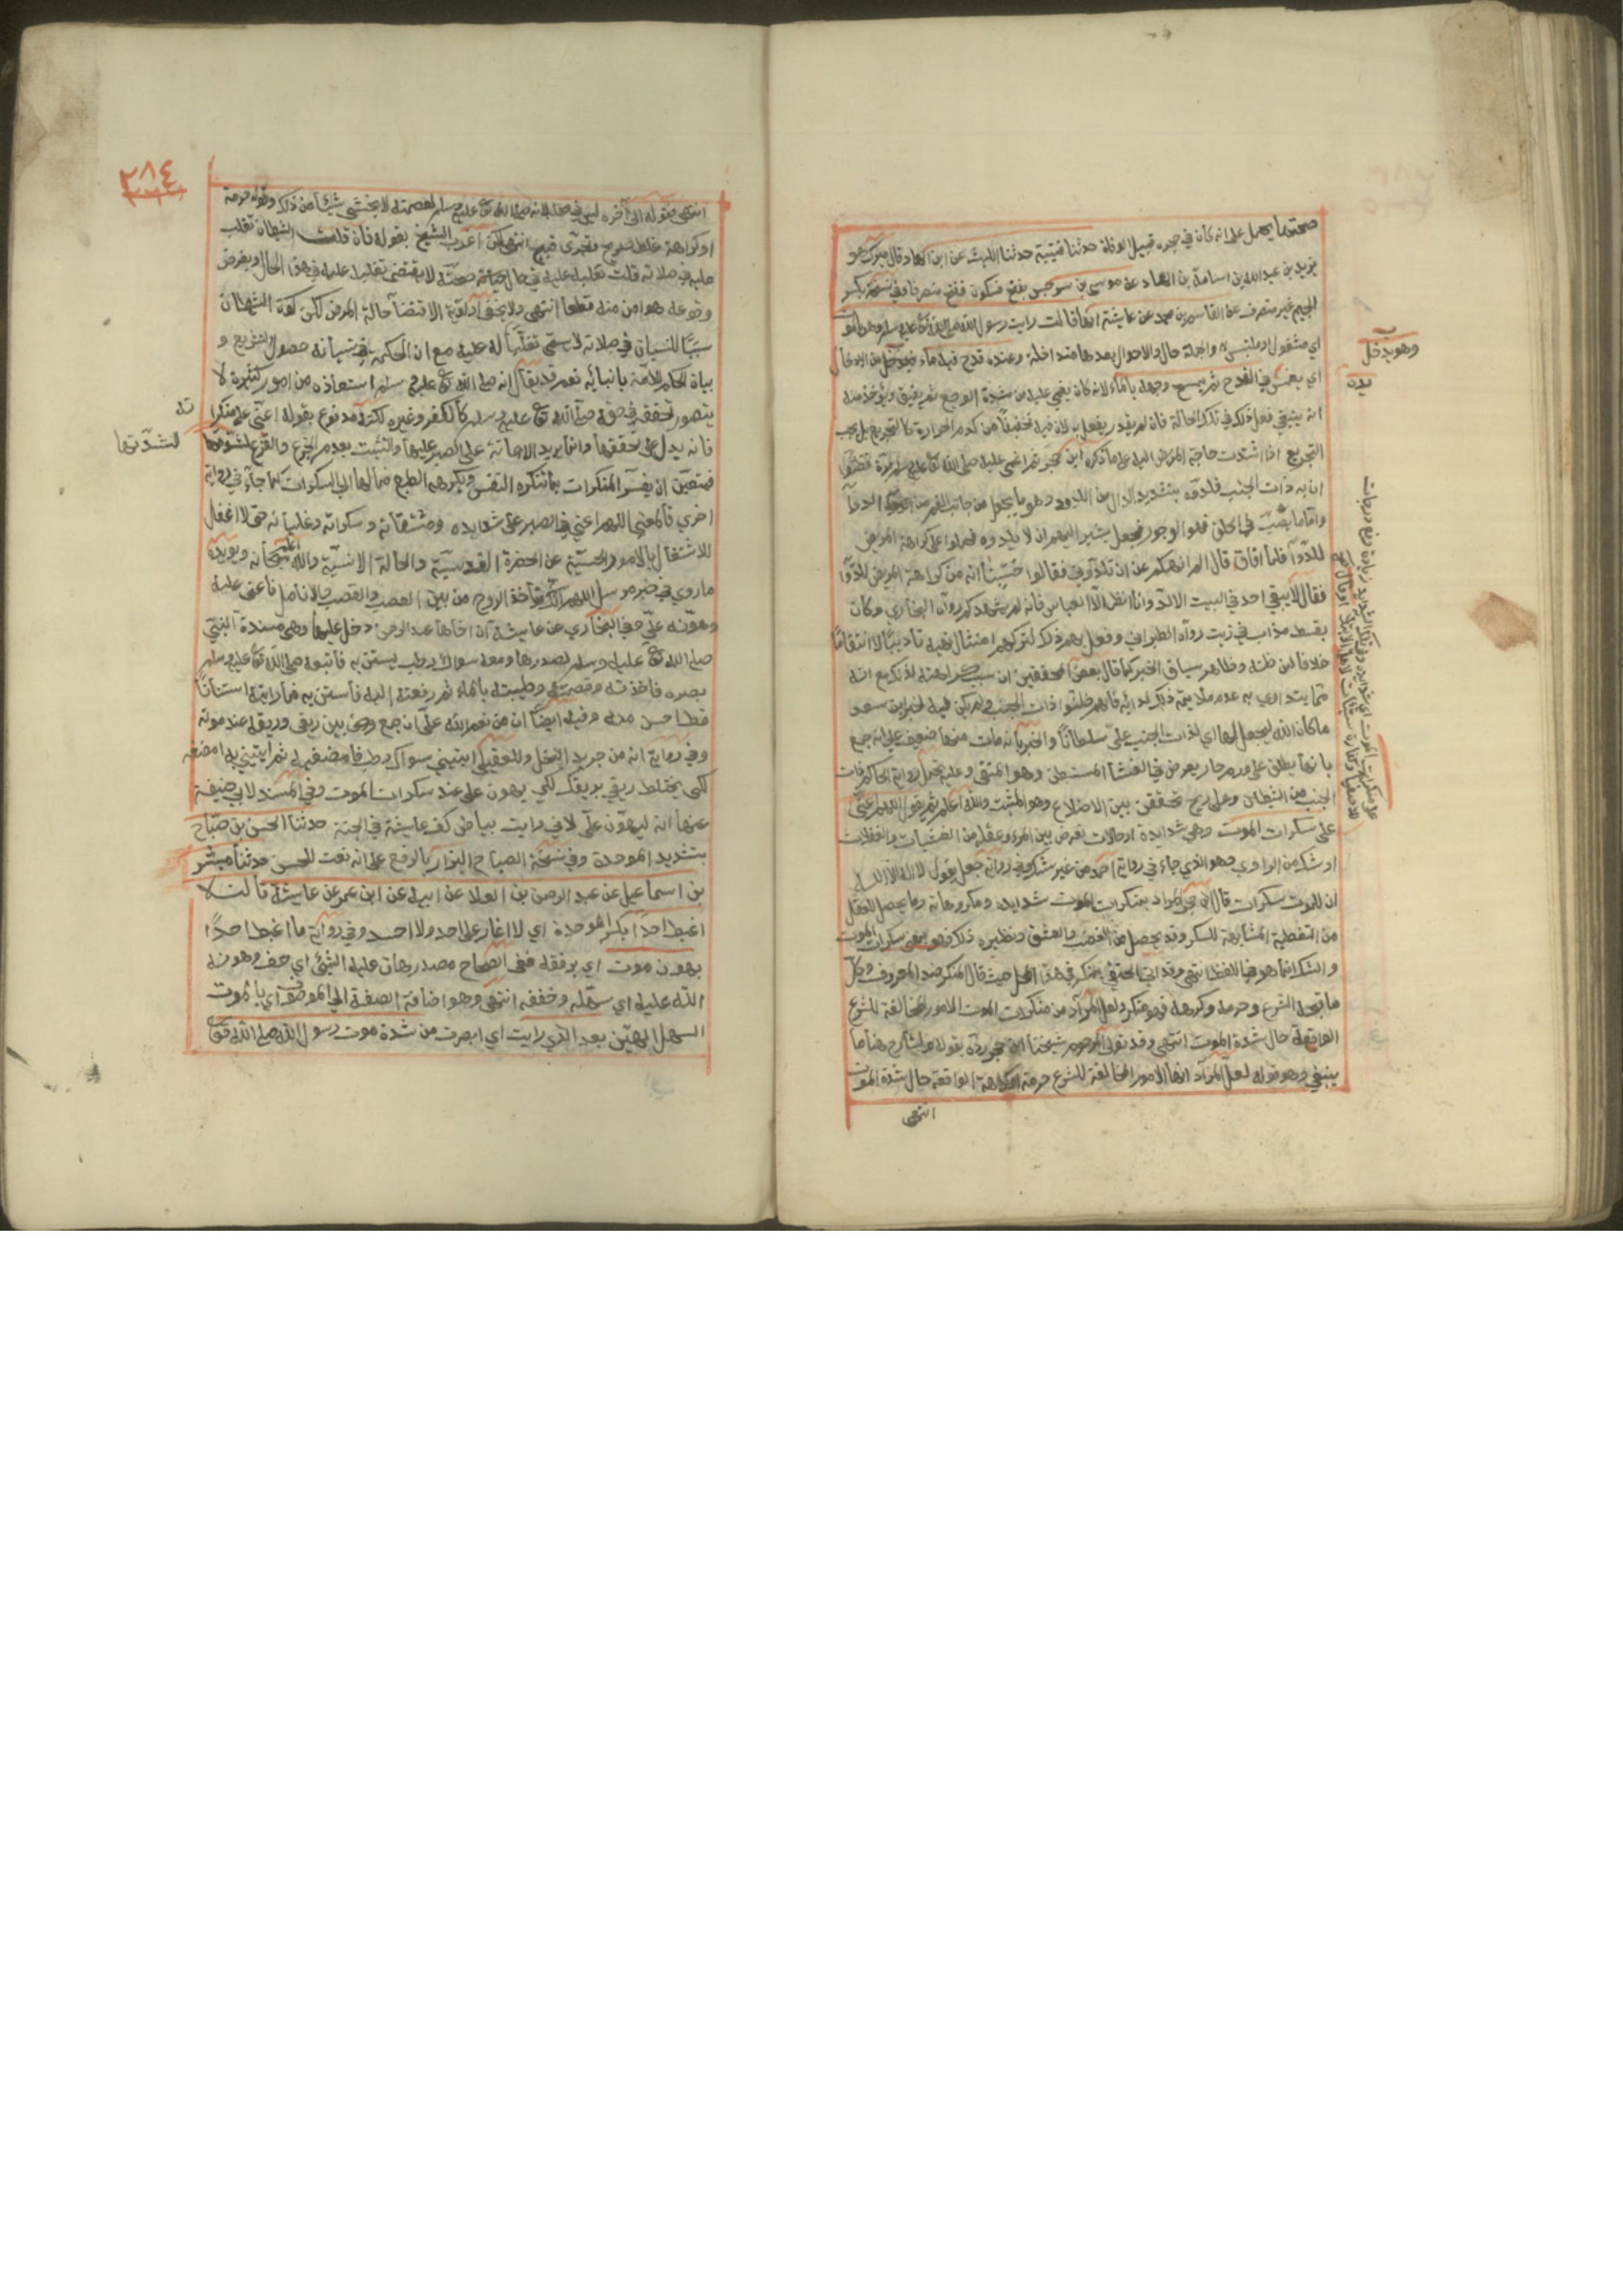 صحتهما يحمل على انه كان في حجره قبيل الوفاة حدثنا قتيبة حدثنا الليث عن ابن الهاد قال ميرك هو
يزيد بن عبد الله بن اسامة بن الهاد عن موسى بن سرجس بفتح فسكون ففتح منصرفا وفي نسخة بكسر
الجيم غير منصرف عن القاسم بن محمد عن عايشة انها قالت رايت رسول الله صلى الله عليه وسلم وهو بالموت
اي مشغول او ملتبس به والجملة حال والاحوال بعدها متداخلة وعنده قدح فيه ماء
وهو يدخل
يده
اي يغمس في القدح ثم يمسح وجهه بالماء لانه كان يغمى عليه من شدة الوجع ثم يفيق ويؤخذ منه
انه ينبغي فعل ذلك في تلك الحالة فان لم يقدر يفعل به لان فيه تخفيفا من كرب الحرارة كالتجريع بل يجب
التجريع اذا اشتدت حاجة المريض اليه على ما ذكره ابن حجر ثم اغمي عليه صلى الله عليه وسلم مرة فظنوا
ان به ذات الجنب فلدوه بتشديد الدال من اللدود وهو ما يجعل من جانب الفم من الدواء
واما ما يصب في الحلق فهو الوجور فجعل يشير اليهم ان لا يلدوه فحملوا على كراهة المريض
للدوآ فلما افاق قال الم انهكم عن ان تلدوني فقالوا حسبنا انه من كراهة المريض للدوآ
فقال لا يبقى احد في البيت الا لد وانا انظر الا العباس فانه لم يشهدكم رواه البخاري وكان
بقسط مذاب في زيت رواه الطبراني وفعل بهم ذلك لتركهم امتثال نهيه تاديبا لا انتقاما
خلافا لمن ظنه وظاهر سياق الخبر كما قال بعض المحققين ان سبب كراهته لذلك مع انه
مما يتداوى به عدم ملايمته ذلك لدائه فانهم ظنوا ذات الجنب ولم يكن فيه لخبر ابن سعد
ما كان الله ليجعل لها اي لذات الجنب علي سلطانا والخبر بانه مات منها ضعيف على انه جمع
بانها يطلق على ورم حار يعرض في الغشا المستبطن وهو المنفي وعليه يحمل رواية الحاكم ذات
الجنب من الشيطان وعلى ريح تحتقن بين الاضلاع وهو المثبت والله اعلم ثم يقول اللهم اعني
على سكرات الموت وهي شدايده او حالات تعرض بين المرء وعقله من الغشيات والغفلات
او شك من الراوي وهو الذي جاء في رواية احمد من غير شك وفي رواية جعل يقول لا اله الا الله
ان للموت سكرات قال المراد بمنكرات الموت شدايده ومكروهاته وما يحصل للعقل
من التغطية المشابهة للسكر وقد يحصل من الغضب والعشق ونظيره ذلك فهو بمعنى سكرات الموت
والشك انما هو في اللفظ انتهى وقد اتى الحنفي بمنكر في هذا المحل حيث قال المنكر ضد المعروف وكل
ما قبحه الشرع وحرمه وكرهه فهو منكر ولعل المراد من منكرات الموت الامور المخالفة للشرع
الواقعة حال شدة الموت انتهى وقد تولى المرحوم شيخنا ابن حجر رده بقوله ولشارح هنا ما
ينبغي وهو قوله لعل المراد انها الامور المخالفة للشرع حرمة او كراهة الواقعة حال شدة الموت
انتهى
٢٨٤
انتهى وقوله الى آخره ليس في محله لانه صلى الله عليه وسلم لعصمته لا يخشى شيئا من ذلك وقوله حرمة
او كراهة غلط صريح وتجري قبيح انتهى لكن اغرب الشيخ بقوله فان قلت الشيطان تغلب
عليه في صلاته قلت تغلبه عليه في حال حياته وصحته لا يقتضي تغلبه عليه في هذا الحال وبفرض
وقوعه هو امن منه قطعا انتهى ولا يخفى اولوية الاقتضا حالة المرض لكن كون الشيطان
سببا للنسيان في صلاته لا يسمى تغلبا له عليه مع ان الحكمة في نسيانه حصول التشريع و
بيان الحكم للامة بانبائه نعم قد يقال انه صلى الله عليه وسلم استعاذه من امور كثيرة لا
يتصور تحققه في حقه صلى الله عليه وسلم كالكفر وغيره لكنه مدفوع بقوله اعني على منكرا
ته
فانه يدل على تحققها وانما يريد الاعانة على الصبر عليها والتثبت بعدم الجزع والفزع
لشدتها
فتعين ان يفسر المنكرات بما تنكره النفس ويكرهه الطبع فمآلها الى السكرات كما جآء في رواية
اخرى فالمعنى اللهم اعني في الصبر على شدايده ومشقاته وسكراته وغلباته حتى لا اغفل
للاشتغال بالامور الحسية عن الحضرة القدسية والحالة الانسية والله سبحانه اعلم ويويده
ما روي في خبر مرسل اللهم انك تاخذ الروح من بين العصب والقصب والانامل فاعني عليه
وهونه علي وفي البخاري عن عايشة ان اخاها عبد الرحمن دخل عليها وهي مسندة النبي
صلى الله عليه وسلم لصدرها ومعه سواك رطب يستن به فاتبعه صلى الله عليه وسلم
بصره فاخذته وقصمته وطيبته بالماء ثم رفعته اليه فاستن به فما رايته استنانا
قط احسن منه وفيه ايضا ان من نعم الله علي ان جمع بين ريقي وريقه عند موته
وفي رواية انه من جريد النخل وللعقيلي ايتيني سواك رطب فامضغيه ثم ايتيني به امضغه
لكي يختلط ريقي بريقك لكي يهون علي عند سكرات الموت وفي المسند لابي حنيفة
عنها انه ليهون علي لاني رايت بياض كف عايشة في الجنة حدثنا الحسن بن صباح
بتشديد الموحدة وفي نسخة الصباح البزار بالرفع على انه نعت للحسن حدثنا مبشر
بن اسماعيل عن عبد الرحمن بن العلا عن ابيه عن ابن عمر عن عايشة قالت لا
اغبط احدا بكسر الموحدة اي لا اغار على احد ولا احسد وفي رواية ما اغبط احدا
بهون موت اي برفقه ففي الصحاح مصدر هان عليه الشيئ اي خف وهونه
الله عليه اي سهله وخففه انتهى وهو اضافة الصفة الى الموصوف اي بالموت
السهل الهين بعد الذي رايت اي ابصرت من شدة موت رسول الله صلى الله